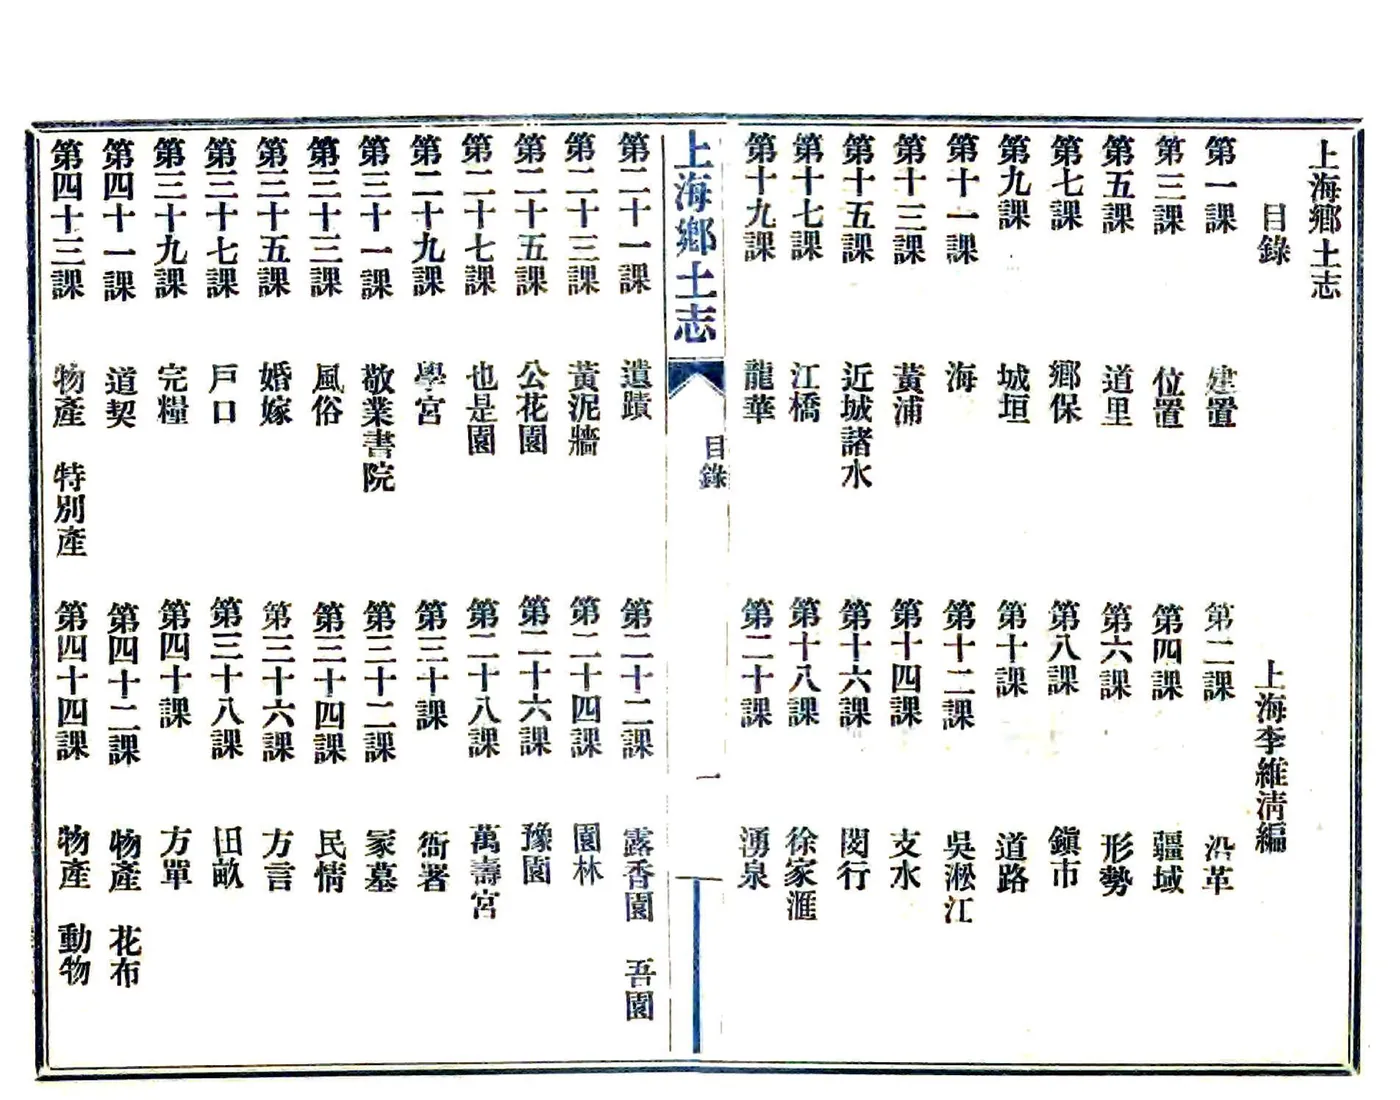 上海鄉土志
目錄
上海李維清編
第一課 建置 第二課 沿革
第三課 位置 第四課 疆域
第五課 道里 第六課 形勢
第七課 鄉保 第八課 鎭市
第九課 城垣 第十課 道路
第十一課 海 第十二課 吳淞江
第十三課 黃浦 第十四課 支水
第十五課 近城諸水 第十六課 閔行
第十七課 江橋 第十八課 徐家滙
第十九課 龍華 第二十課 湧泉
上海鄉土志
目錄
一
第二十一課 遺蹟 第二十二課 露香園 吾園
第二十三課 黃泥牆 第二十四課 園林
第二十五課 公花園 第二十六課 豫園
第二十七課 也是園 第二十八課 萬壽宮
第二十九課 學宮 第三十課 衙署
第三十一課 敬業書院 第三十二課 冢墓
第三十三課 風俗 第三十四課 民情
第三十五課 婚嫁 第三十六課 方言
第三十七課 戶口 第三十八課 田畝
第三十九課 完糧 第四十課 方單
第四十一課 道契 第四十二課 物產 花布
第四十三課 物產 特別產 第四十四課 物產 動物